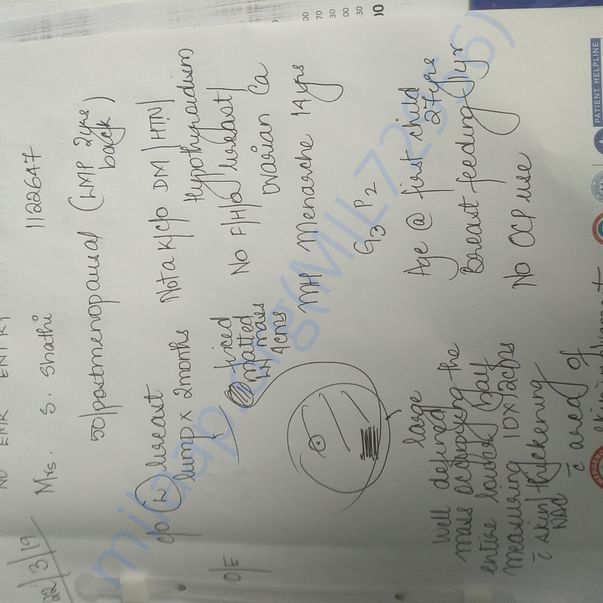 NO EMR ENTRY
22/3/19
Mrs. S. Shathi 1122647
50/postmenopausal (LMP 2yrs
back)
c/o (L) breast
lump x 2months
Not a k/c/o DM/HTN/
Hypothyroidism
No F/H/o breast/
Ovarian Ca
MH Menarche 14 yrs
G3 P2
Age @ first child
27yrs
Breast feeding (1yr
No OCP use
O/E
fixed
matted
LN mass
4cms
large
well defined
mass occupying the
entire lower half
measuring 10x12cms
c̄ skin thickening
NAC c̄ area of
milaap.org(MIL
PATIENT HELPLINE
00
70
30
00
.30
00